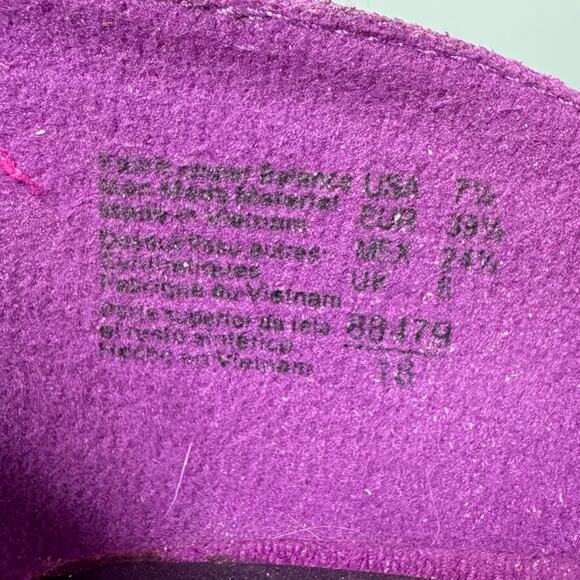 Fabric Upper Balance USA 7½
Man Made Material EUR 39¼
Made in Vietnam MEX 24½
Dessus tissu autres UK 6
synthétiques
Fabriqué au Vietnam
Parte superior de tela 88479
el resto sintético 18
Hecho en Vietnam